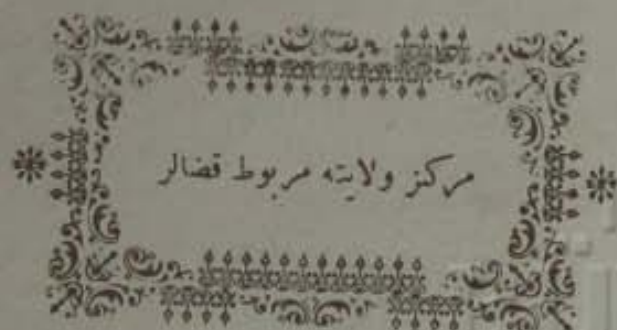 مركز ولايته مربوط قضالر